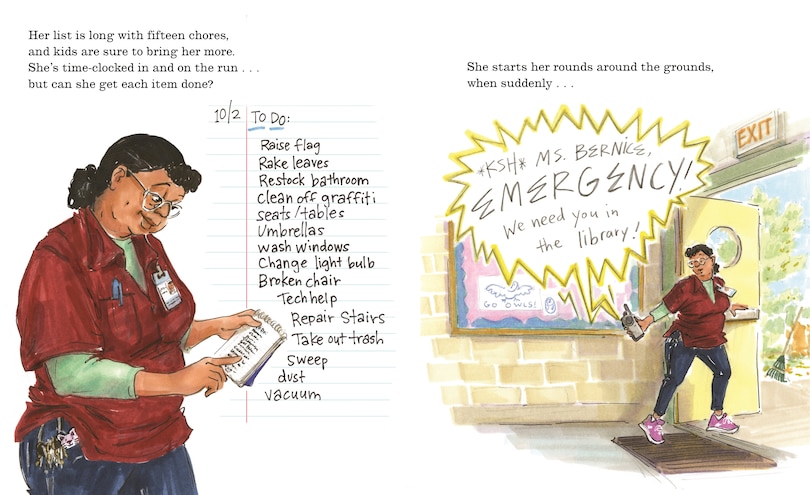 Her list is long with fifteen chores,
and kids are sure to bring her more.
She's time-clocked in and on the run . . .
but can she get each item done?
10/2 TO DO:
Raise flag
Rake leaves
Restock bathroom
clean off graffiti
seats/tables
Umbrellas
wash windows
Change light bulb
Broken chair
Tech help
Repair Stairs
Take out trash
sweep
dust
vacuum
She starts her rounds around the grounds,
when suddenly . . .
EXIT
*KSH* MS. BERNICE,
EMERGENCY!
We need you in
the library!
GO OWLS!